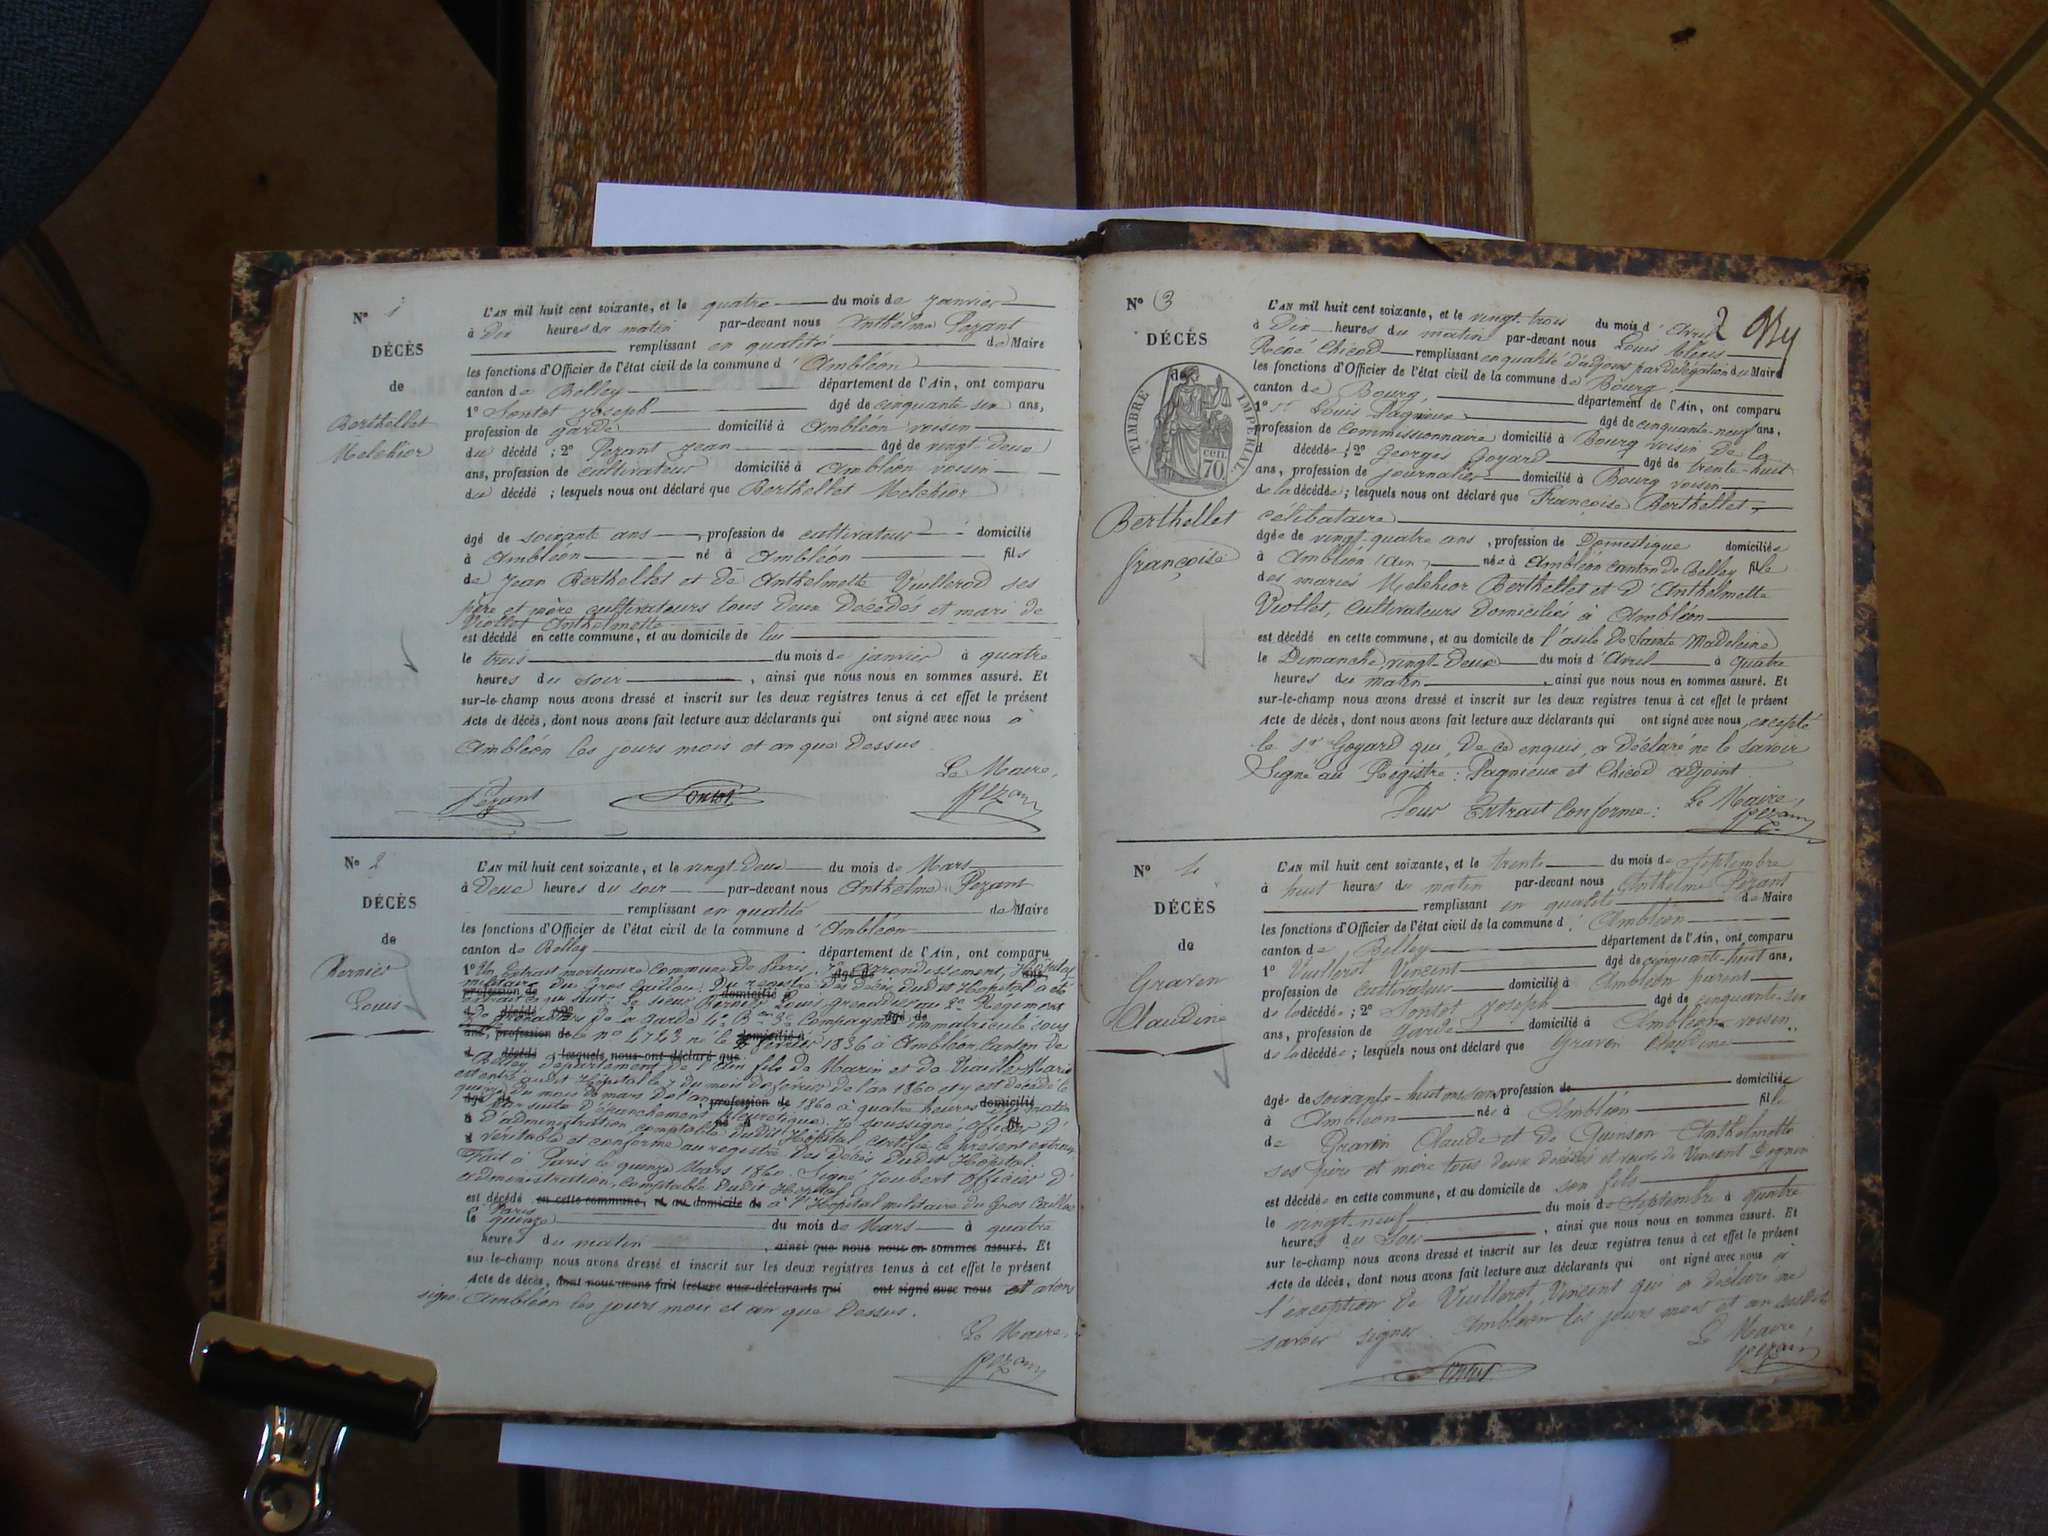 N° 1
DÉCÈS
de
Berthellet
Melchior
L'AN mil huit cent soixante, et le quatre du mois de janvier
à Dix heures du matin par-devant nous Anthelme Pezant
remplissant en qualité de Maire
les fonctions d'Officier de l'état civil de la commune d'Ambléon
canton de Belley département de l'Ain, ont comparu
1° Sontot Joseph âgé de cinquante six ans,
profession de garde domicilié à Ambléon voisin
du décédé ; 2° Pezant Jean âgé de vingt-deux
ans, profession de cultivateur domicilié à Ambléon voisin
du décédé ; lesquels nous ont déclaré que Berthellet Melchior
âgé de soixante ans, profession de cultivateur domicilié
à Ambléon né à Ambléon fils
de Jean Berthellet et de Anthelmette Vuillerod ses
père et mère cultivateurs tous deux Décédés et mari de
Viollet Anthelmette
est décédé en cette commune, et au domicile de lui
le trois du mois de janvier à quatre
heures du soir, ainsi que nous nous en sommes assuré. Et
sur-le-champ nous avons dressé et inscrit sur les deux registres tenus à cet effet le présent
Acte de décès, dont nous avons fait lecture aux déclarants qui ont signé avec nous à
Ambléon les jours mois et an que Dessus
Le Maire,
Pezant Sontot Pezant
N° 2
DÉCÈS
de
Bernier
Louis
L'AN mil huit cent soixante, et le vingt-deux du mois de Mars
à Deux heures du soir par-devant nous Anthelme Pezant
remplissant en qualité de Maire
les fonctions d'Officier de l'état civil de la commune d'Ambléon
canton de Belley département de l'Ain, ont comparu
1° Un Extrait mortuaire commune de Paris, arrondissement, Hôpital
militaire du Gros Caillou. Du registre des Décès dudit Hôpital a été
extrait ce qui suit: Le sieur Louis, grenadier au 2e Régiment
de Grenadiers de la Garde 4e Bon 3e Compagnie immatriculé sous
le no 4743 né le février 1836 à Ambléon, Canton de
Belley, département de l'Ain fils de Marin et de Marie
est entré audit Hôpital le 7 du mois de février de l'an 1860 et y est décédé le
quinze du mois de mars de l'an 1860 à quatre heures du matin
par suite d'épanchement pleurétique. Je soussigné, officier
d'administration comptable dudit Hôpital certifie le présent extrait
véritable et conforme au registre des Décès Dudit Hôpital:
Fait à Paris le quinze Mars 1860. Signé Joubert officier d'
administration, comptable Dudit Hôpital
est décédé en cette commune, et au domicile de à l'Hôpital militaire du Gros Caillou
Paris
le quinze du mois de Mars à quatre
heures du matin, ainsi que nous nous en sommes assuré. Et
sur-le-champ nous avons dressé et inscrit sur les deux registres tenus à cet effet le présent
Acte de décès, dont nous avons fait lecture aux déclarants qui ont signé avec nous et avons
signé. Ambléon les jours mois et an que Dessus.
Le Maire,
Pezant
2
N° 3
DÉCÈS
de
TIMBRE IMPÉRIAL
70 cen.
Berthellet
Françoise
L'AN mil huit cent soixante, et le vingt-trois du mois d'Avril
à Dix heures du matin par-devant nous Louis Alexis
Réné Chicod remplissant en qualité d'adjoint par délégation du Maire
les fonctions d'Officier de l'état civil de la commune de Bourg
canton de Bourg, département de l'Ain, ont comparu
1° Sr Louis Pagnieux âgé de cinquante-neuf ans,
profession de Commissionnaire domicilié à Bourg voisin De la
d décédée ; 2° Georges Goyard âgé de trente-huit
ans, profession de journalier domicilié à Bourg voisin
de la décédée ; lesquels nous ont déclaré que Françoise Berthellet,
célibataire
âgée de vingt-quatre ans, profession de Domestique domiciliée
à Ambléon (Ain) née à Ambléon canton de Belley fille
des mariés Melchior Berthellet et D'Anthelmette
Viollet, cultivateurs domiciliés à Ambléon
est décédé en cette commune, et au domicile de l'asile De Sainte Madeleine
le Dimanche vingt-deux du mois d'Avril à quatre
heures du matin, ainsi que nous nous en sommes assuré. Et
sur-le-champ nous avons dressé et inscrit sur les deux registres tenus à cet effet le présent
Acte de décès, dont nous avons fait lecture aux déclarants qui ont signé avec nous, excepté
le sr Goyard qui, De ce enquis, a déclaré ne le savoir
Signé au Registre: Pagnieux et Chicod adjoint
Pour Extrait Conforme: Le Maire,
Pezant
N° 4
DÉCÈS
de
Graven
Claudine
L'AN mil huit cent soixante, et le trente du mois de Septembre
à huit heures du matin par-devant nous Anthelme Pezant
remplissant en qualité de Maire
les fonctions d'Officier de l'état civil de la commune d'Ambléon
canton de Belley département de l'Ain, ont comparu
1° Vuillerot Vincent âgé de cinquante-huit ans,
profession de cultivateur domicilié à Ambléon parent
de la décédée ; 2° Sontot Joseph âgé de cinquante-six
ans, profession de garde domicilié à Ambléon voisin
de la décédée ; lesquels nous ont déclaré que Graven Claudine
âgée de soixante-huit ans profession de domiciliée
à Ambléon née à Ambléon fille
de Graven Claude et de Quinson Anthelmette
ses père et mère tous deux décédés et veuve de Vincent
est décédée en cette commune, et au domicile de son fils
le vingt-neuf du mois de Septembre à quatre
heures du soir, ainsi que nous nous en sommes assuré. Et
sur-le-champ nous avons dressé et inscrit sur les deux registres tenus à cet effet le présent
Acte de décès, dont nous avons fait lecture aux déclarants qui ont signé avec nous à
l'exception de Vuillerot Vincent qui a déclaré ne
savoir signer. Ambléon les jours mois et an susdits
Le Maire,
Sontot Pezant